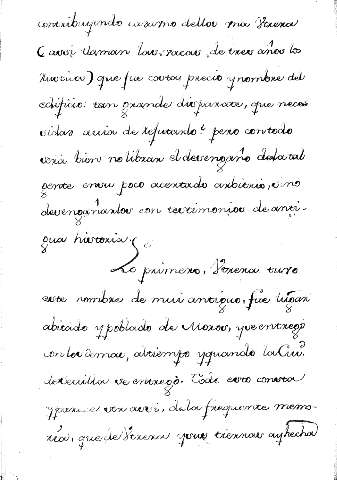 contribuyendo cadauno dellos una Utrera
(assi llaman las vacas de tres años los
rusticos) que fue costas precio y nombre del
edificio: tan grande disparate, que neces
sidad avia de refutarlo? pero contodo
será bien no librar el desengaño de la tal
gente en su poco acertado arbitrio, sino
desengañarlos con testimonios de anti-
gua historia.
Lo primero, Utrera tuvo
este nombre de mui antiguo, fue lugar
abitado y poblado de Moros, que entregó
con los demas, al tiempo y quando la Ciud.
de Sevilla se entregó. Todo esto consta
y parece ser assi, de la frequente memo-
ria, que de Utrera y sus tierras ay hecha